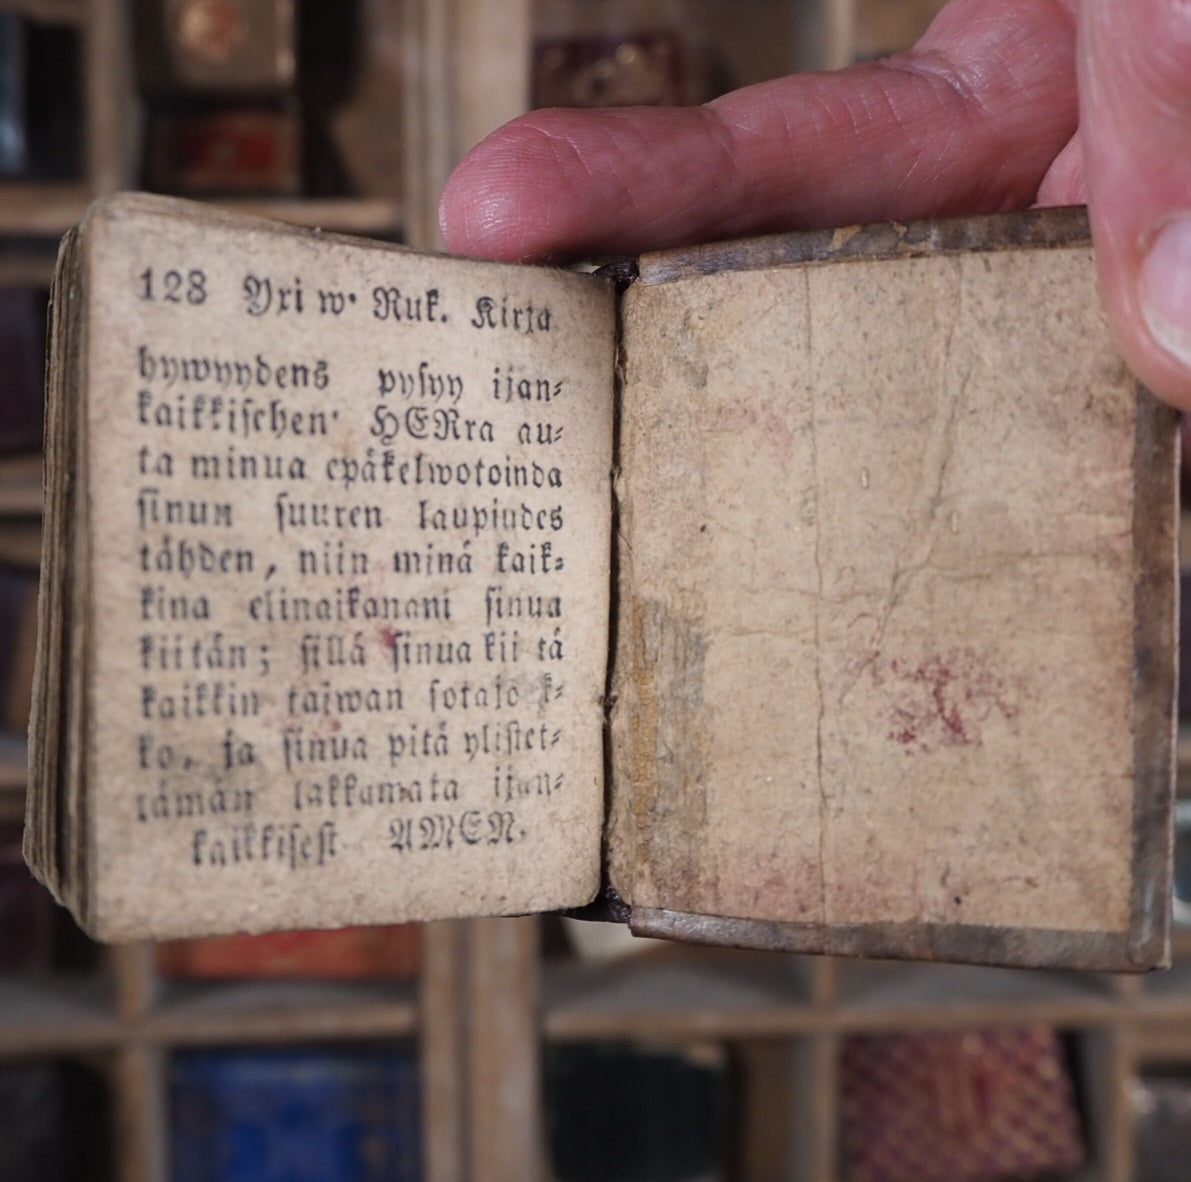 128 Yri w. Ruk. Kirja
hywyydens pysyy ijan-
kaikkischen. HERra au-
ta minua epäkelwotoinda
sinun suuren laupiudes
tähden, niin minä kaik-
kina elinaikanani sinua
kiitän; sillä sinua kii tä
kaikkin taiwan sotajo k-
ko, ja sinua pitä ylistet-
tämän lakkamata ijan-
kaikkisest AMEN.